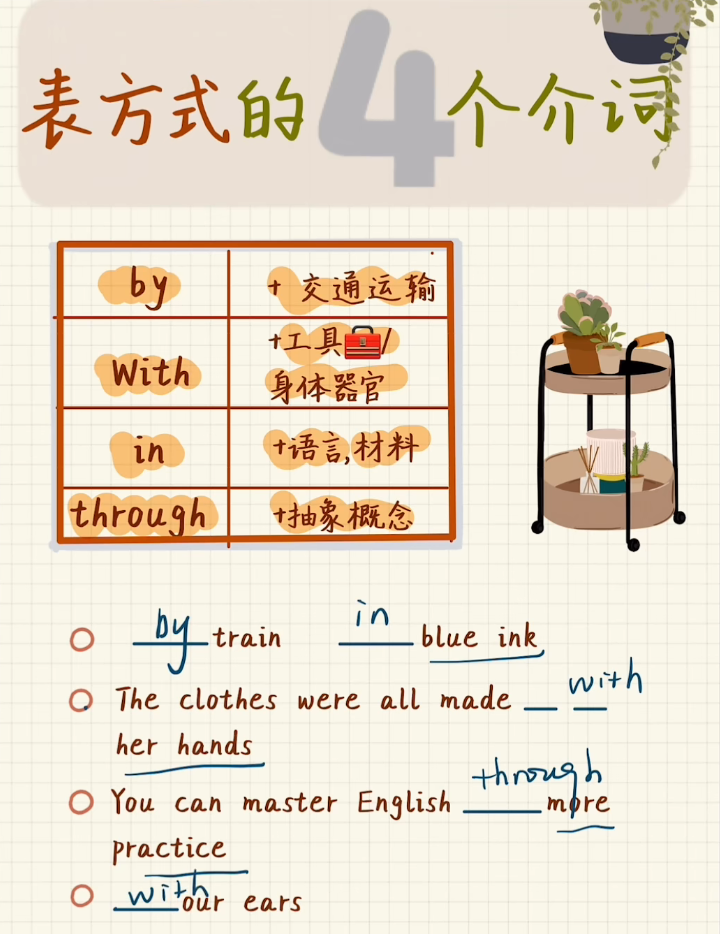 表方式的4个介词
by + 交通运输
With +工具/
身体器官
in +语言,材料
through +抽象概念
by train in blue ink
The clothes were all made with
her hands
You can master English through more
practice
with our ears